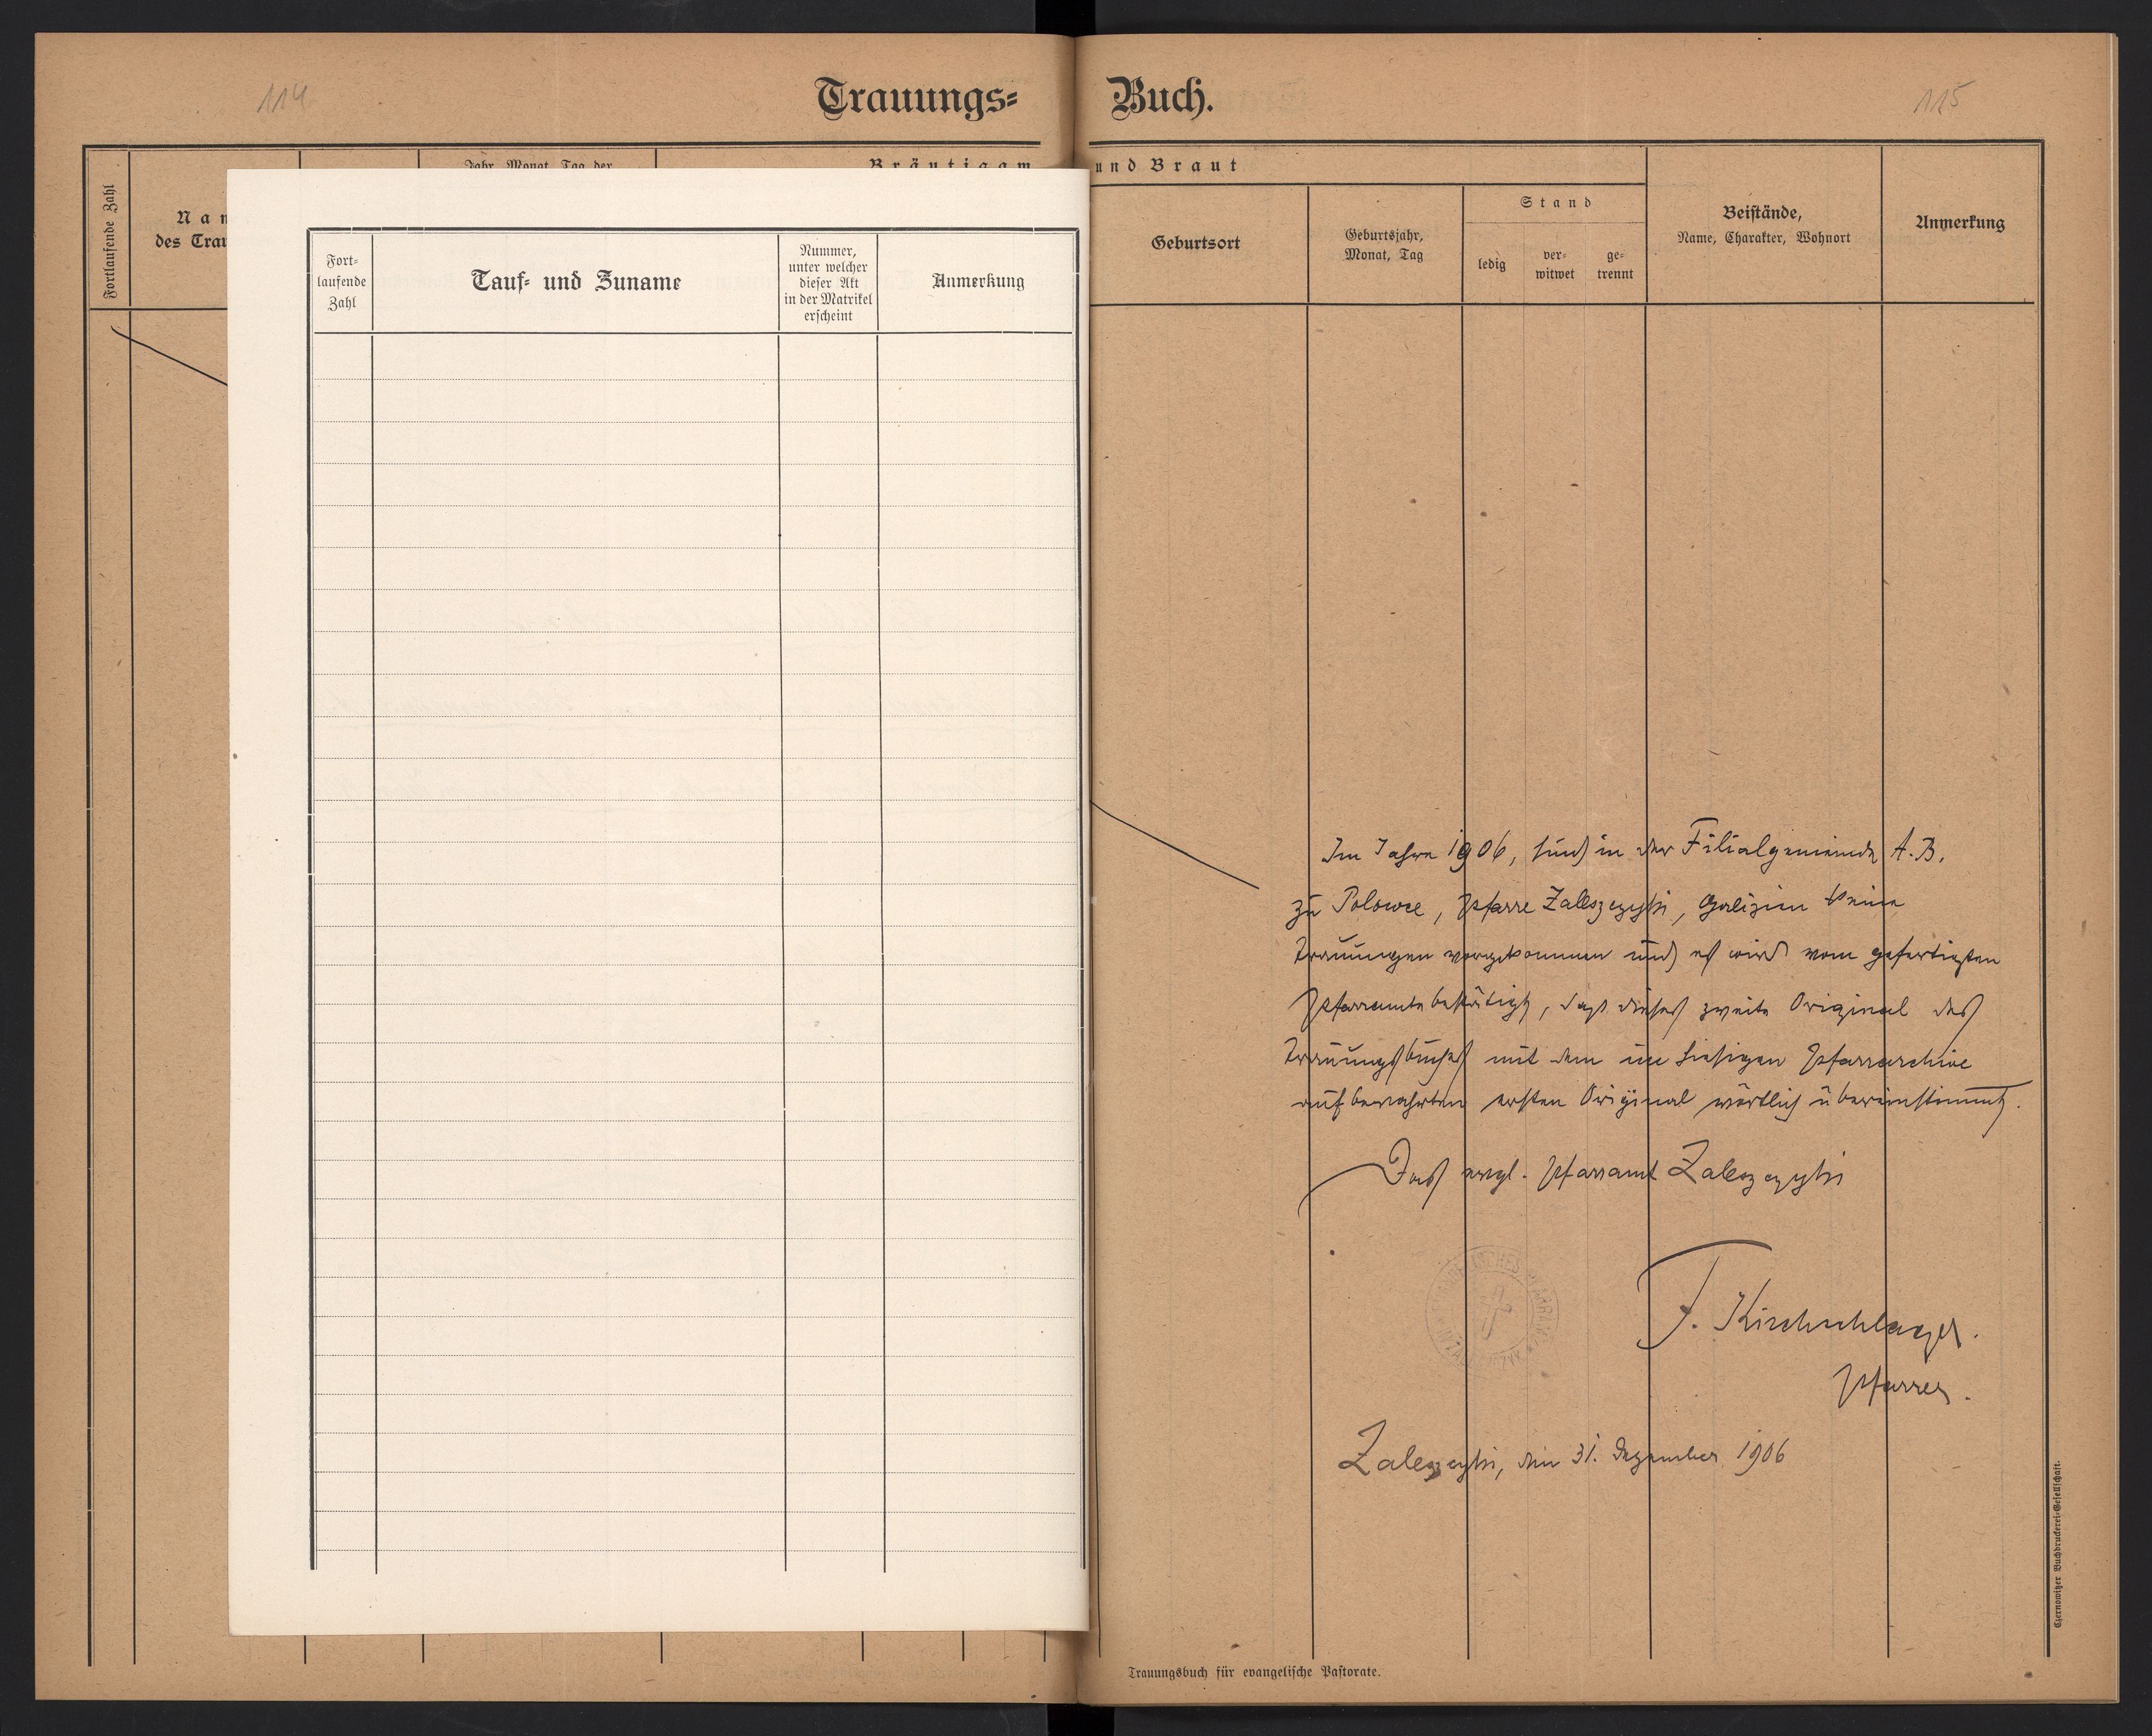 114
Trauungs=
Buch.
115
Fortlaufende Zahl
Nam
des Trau
Jahr, Monat, Tag der
Bräutigam
und Braut
Geburtsort
Geburtsjahr,
Monat, Tag
Stand
ledig
ver=
witwet
ge=
trennt
Beistände,
Name, Charakter, Wohnort
Anmerkung
Fort=
laufende
Zahl
Tauf= und Zuname
Nummer,
unter welcher
dieser Akt
in der Matrikel
erscheint
Anmerkung
Im Jahre 1906, sind in der Filialgemeinde A. B.
zu Polowce, Pfarre Zaleszczyki, Galizien keine
Trauungen vorgekommen und es wird vom gefertigten
Pfarramte bestätigt, dass dieses zweite Original des
Trauungsbuches mit dem im hiesigen Pfarrarchive
aufbewahrten ersten Original wörtlich übereinstimmt.
Das evgl. Pfarramt Zaleszczyki
F. Kirchschlager.
Pfarrer.
Zaleszczyki, den 31. Dezember 1906
Trauungsbuch für evangelische Pastorate.
Czernowitzer Buchdruckerei=Gesellschaft.